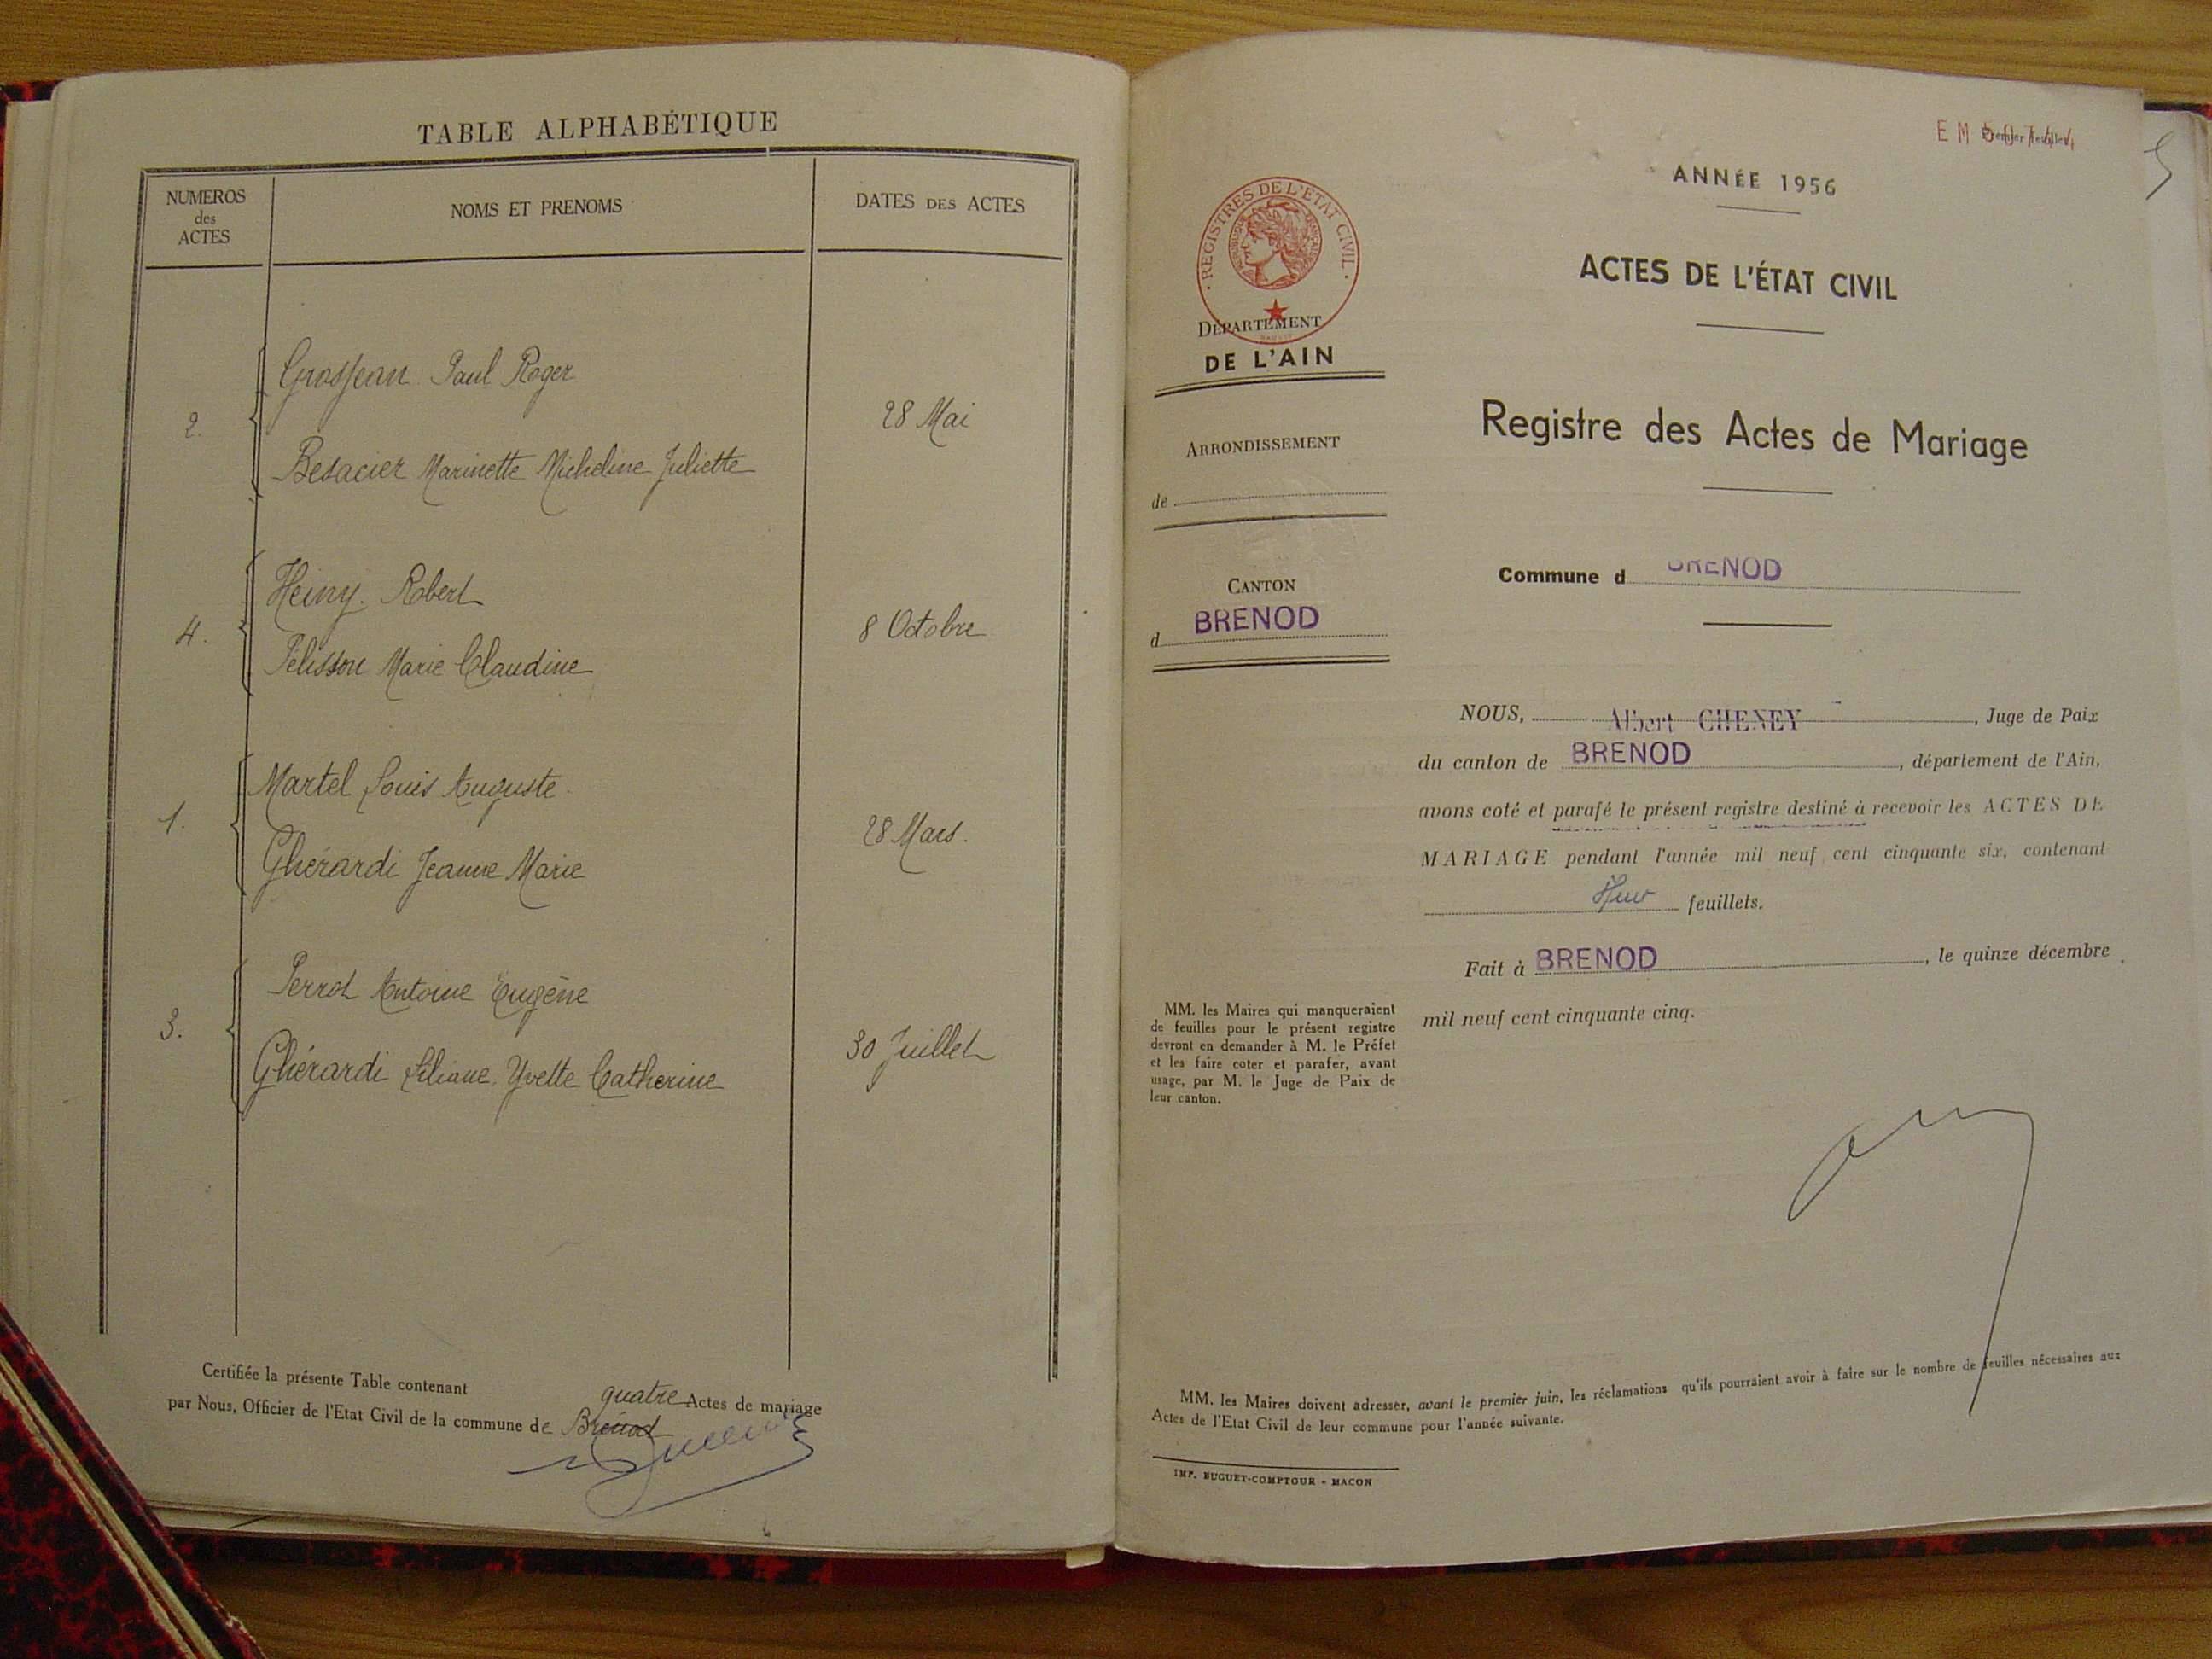 TABLE ALPHABÉTIQUE
NUMEROS
des
ACTES
NOMS ET PRENOMS
DATES DES ACTES
Grosjean Paul Roger
2.
28 Mai
Besacier Marinette Micheline Juliette
Heiny. Robert
4.
8 Octobre
Pélisson Marie Claudine
Martel Louis Auguste.
1.
28 Mars.
Ghérardi Jeanne Marie
Perrot Antoine Eugène
3.
30 Juillet
Ghérardi Liliane, Yvette Catherine
Certifiée la présente Table contenant quatre Actes de mariage
par Nous, Officier de l'Etat Civil de la commune de Brénod
E M
Premier feuillet
ANNÉE 1956
ACTES DE L'ÉTAT CIVIL
Registre des Actes de Mariage
· REGISTRES DE L'ETAT CIVIL ·
DÉPARTEMENT
DE L'AIN
ARRONDISSEMENT
de
CANTON
d BRENOD
Commune d BRENOD
NOUS, Albert CHENEY, Juge de Paix
du canton de BRENOD, département de l'Ain,
avons coté et parafé le présent registre destiné à recevoir les ACTES DE
MARIAGE pendant l'année mil neuf cent cinquante six, contenant
feuillets.
Fait à BRENOD, le quinze décembre
mil neuf cent cinquante cinq.
MM. les Maires qui manqueraient
de feuilles pour le présent registre
devront en demander à M. le Préfet
et les faire coter et parafer, avant
usage, par M. le Juge de Paix de
leur canton.
MM. les Maires doivent adresser, avant le premier juin, les réclamations qu'ils pourraient avoir à faire sur le nombre de feuilles nécessaires aux
Actes de l'Etat Civil de leur commune pour l'année suivante.
IMP. BUGUET-COMPTOUR - MACON